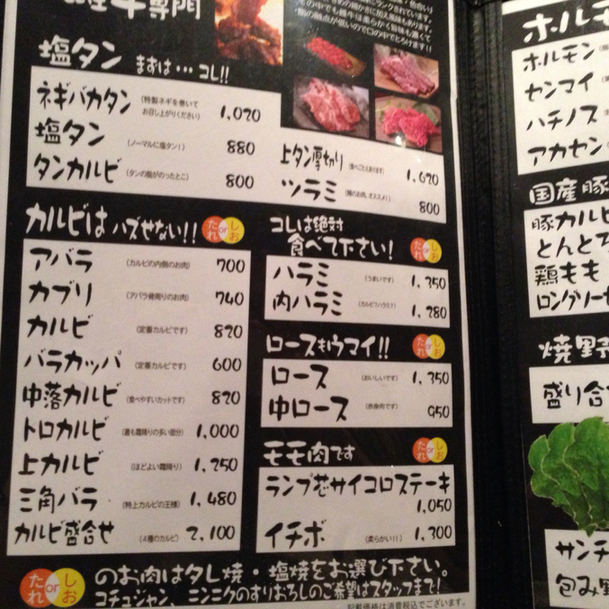 専門
塩タン まずは・・・コレ!!
ネギバカタン (特製ネギを巻いてお召し上がりください) 1,020
塩タン (ノーマルに塩タン!) 880
タンカルビ (タンの脂がのったとこ) 800
上タン厚切り 1,020
ツラミ 800
カルビは ハズせない!! たれ or しお
アバラ (カルビの内側のお肉) 700
カブリ (アバラ骨周りのお肉) 740
カルビ (定番カルビです) 820
バラカッパ (定番カルビです) 600
中落カルビ (食べやすいカットです) 820
トロカルビ (最も霜降りの多い部分) 1,000
上カルビ (ほどよい霜降り) 1,250
三角バラ (特上カルビの王様) 1,480
カルビ盛合せ (4種のカルビ) 2,100
コレは絶対
食べて下さい! たれ or しお
ハラミ (うまいです) 1,350
内ハラミ (カルビ?ハラミ?) 1,280
ロースもウマイ!! たれ or しお
ロース (おいしいです) 1,350
中ロース (赤身肉です) 950
モモ肉です たれ or しお
ランプ芯サイコロステーキ
1,050
イチボ (柔らかい!!) 1,300
たれ or しお のお肉はタレ焼・塩焼をお選び下さい。
コチュジャン、ニンニクのすりおろしのご希望はスタッフまで!
記載価格は消費税込でございます。
ホルモ
ホルモン
センマイ
ハチノス
アカセン
国産豚
豚カルビ
とんと
鶏もも
ロングソーセ
焼野
盛り合
サンチ
包み